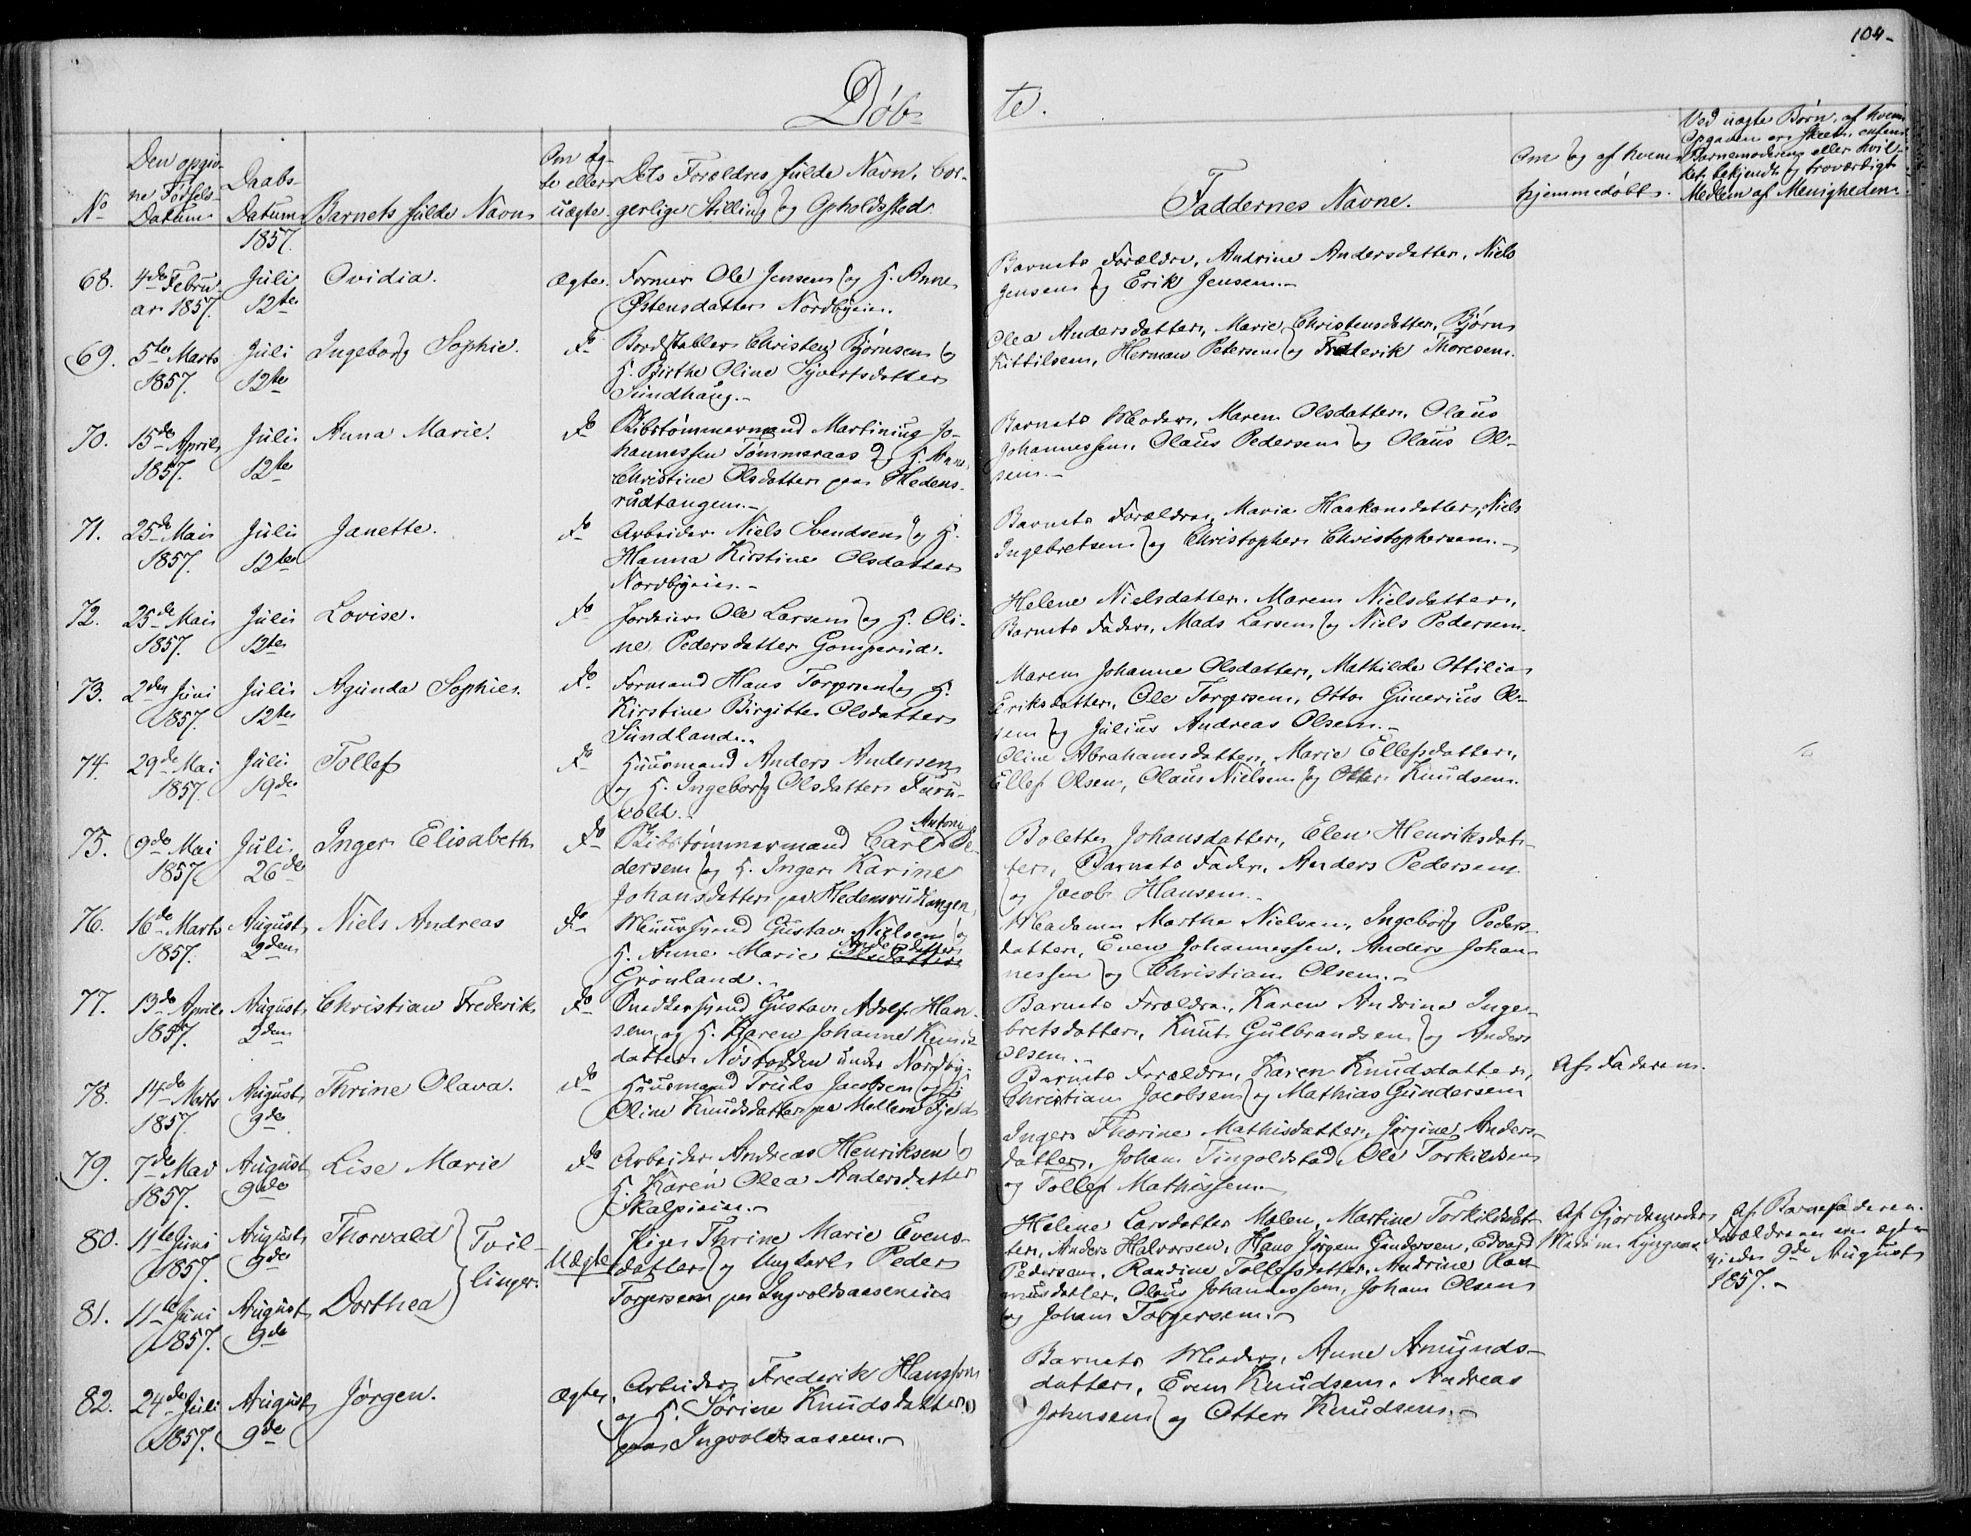 104.
Døbte.
No
Den opgivne Fødsels Datum
Daabs Datum
Barnets fulde Navn
Om ægte eller uægte.
Dets Forældres fulde Navn, borgerlige Stilling og Opholdssted
Faddernes Navne.
Om og af hvem hjemmedøbt.
Ved uægte Børn, af hvem Opgaven er skeet, enten Barnemoderen eller hvilket bekjendt og troværdigt Medlem af Menigheden
1857.
68. 4de Februar 1857. Juli 12te Ovidia. Ægte.
Former Ole Jensen og H. Anne
Østensdatter Nordbyeien.
Barnets Forældre, Andrine Andersdatter, Niels
Jensen og Erik Jensen.
69. 5te Marts 1857. Juli 12te Ingeborg Sophie. do
Bordstabler Christen Bjørnsen og
H. Birthe Oline Syvertsdatter
Sundhaug.
Olea Andersdatter, Marie Christensdatter, Bjørn
Kittilsen, Herman Petersen og Frederik Thoresen.
70. 15de April 1857. Juli 12te Anna Marie. do
Skibstømmermand Martinius Jo-
hannessen Tømmeraas og H. Anne
Christine Olsdatter paa Hedens-
rudtangen.
Barnets Moder, Maren Olsdatter, Olaus
Johannessen, Olaus Pedersen og Olaus Ol-
sen.
71. 25de Mai 1857. Juli 12te Janette. do
Arbeider Niels Svendsen og H.
Hanna Kirstine Olsdatter
Nordbyeien.
Barnets Forældre, Maria Haakonsdatter, Niels
Ingebretsen og Christopher Christophersen.
72. 25de Mai 1857. Juli 12te Lovise. do
Jordeier Ole Larsen og H. Oli-
ne Pedersdatter Gomperud.
Helene Nielsdatter, Maren Nielsdatter,
Barnets Fader, Mads Larsen og Niels Pedersen.
73. 2den Juni 1857. Juli 12te Agunda Sophie. do
Formand Hans Torgersen og H.
Kirstine Birgitte Olsdatter
Sundland.
Maren Johanne Olsdatter, Mathilde Ottilia
Eriksdatter, Ole Torgersen, Otto Gunerius Ol-
sen og Julius Andreas Olsen.
74. 29de Mai 1857. Juli 19de Tollef do
Huusmand Anders Andersen
og H. Ingeborg Olsdatter Furu-
vold.
Oline Abrahamsdatter, Marie Ellefsdatter,
Ellef Olsen, Olaus Nielsen og Otter Knudsen.
75. 9de Mai 1857. Juli 26de Inger Elisabeth do
Skibstømmermand Carl Anton Pe-
dersen og H. Inger Karine
Johansdatter paa Hedensrudtangen
Bolette Johansdatter, Elen Henriksdat-
ter, Barnets Fader, Anders Pedersen
og Jacob Hansen.
76. 16de Marts 1857. August 2den Niels Andreas do
Muursvend Gustav Nielsen og
H. Anne Marie Olsdatter
Grönland.
Madame Marthe Nielsen, Ingeborg Peders-
datter, Even Johannessen, Anders Johan-
nessen og Christian Olsen.
77. 13de April 1857. August 2den Christian Frederik do
Snedkersvend Gustav Adolf Han-
sen og H. Karen Johanne Knuds-
datter Nøstodden under Nordby.
Barnets Forældre, Karen Andrine Inge-
bretsdatter, Knut Gulbrandsen og Anders
Olsen.
78. 14de Marts 1857. August 9de Thrine Olava. do
Huusmand Truls Jacobsen og H.
Oline Knudsdatter paa Mellem Fjeld
Barnets Forældre, Karen Knudsdatter,
Christian Jacobsen og Mathias Gundersen
Af Faderen.
79. 7de Mai 1857. August 9de Lise Marie do
Arbeider Andreas Henriksen og
H. Karen Olea Andersdatter
Skalpeien.
Inger Thorine Mathisdatter, Jørgine Anders-
datter, Johan Tingelstad, Ole Torkildsen
og Tollef Mathisen.
80. 11te Juni 1857. August 9de Thorvald
81. 11te Juni 1857. August 9de Dorthea
Tvillinger.
Uægte
Pige Thrine Marie Evens-
datter og Ungkarl Peder
Torgersen paa Ingvoldsaasen
Helene Larsdatter Malen, Martine Torkildsdat-
ter, Anders Halvorsen, Hans Jørgen Gundersen, Edvard
Pedersen, Randine Tollefsdatter, Andrine Ras-
musdatter, Olaus Johannessen, Johan Olsen
og Johan Torgersen.
Af Gjordemoder
Madame
Af Barnefaderen.
Forældrene ere ægte-
viede 9de August
1857.
82. 24de Juli 1857. August 9de Jørgen. Ægte.
Arbeider Frederik Hanssen
og H. Sørine Knudsdatter
paa Ingvoldsaasen.
Barnets Moder, Anne Amunds-
datter, Even Knudsen, Andreas
Johnsen og Otter Knudsen.